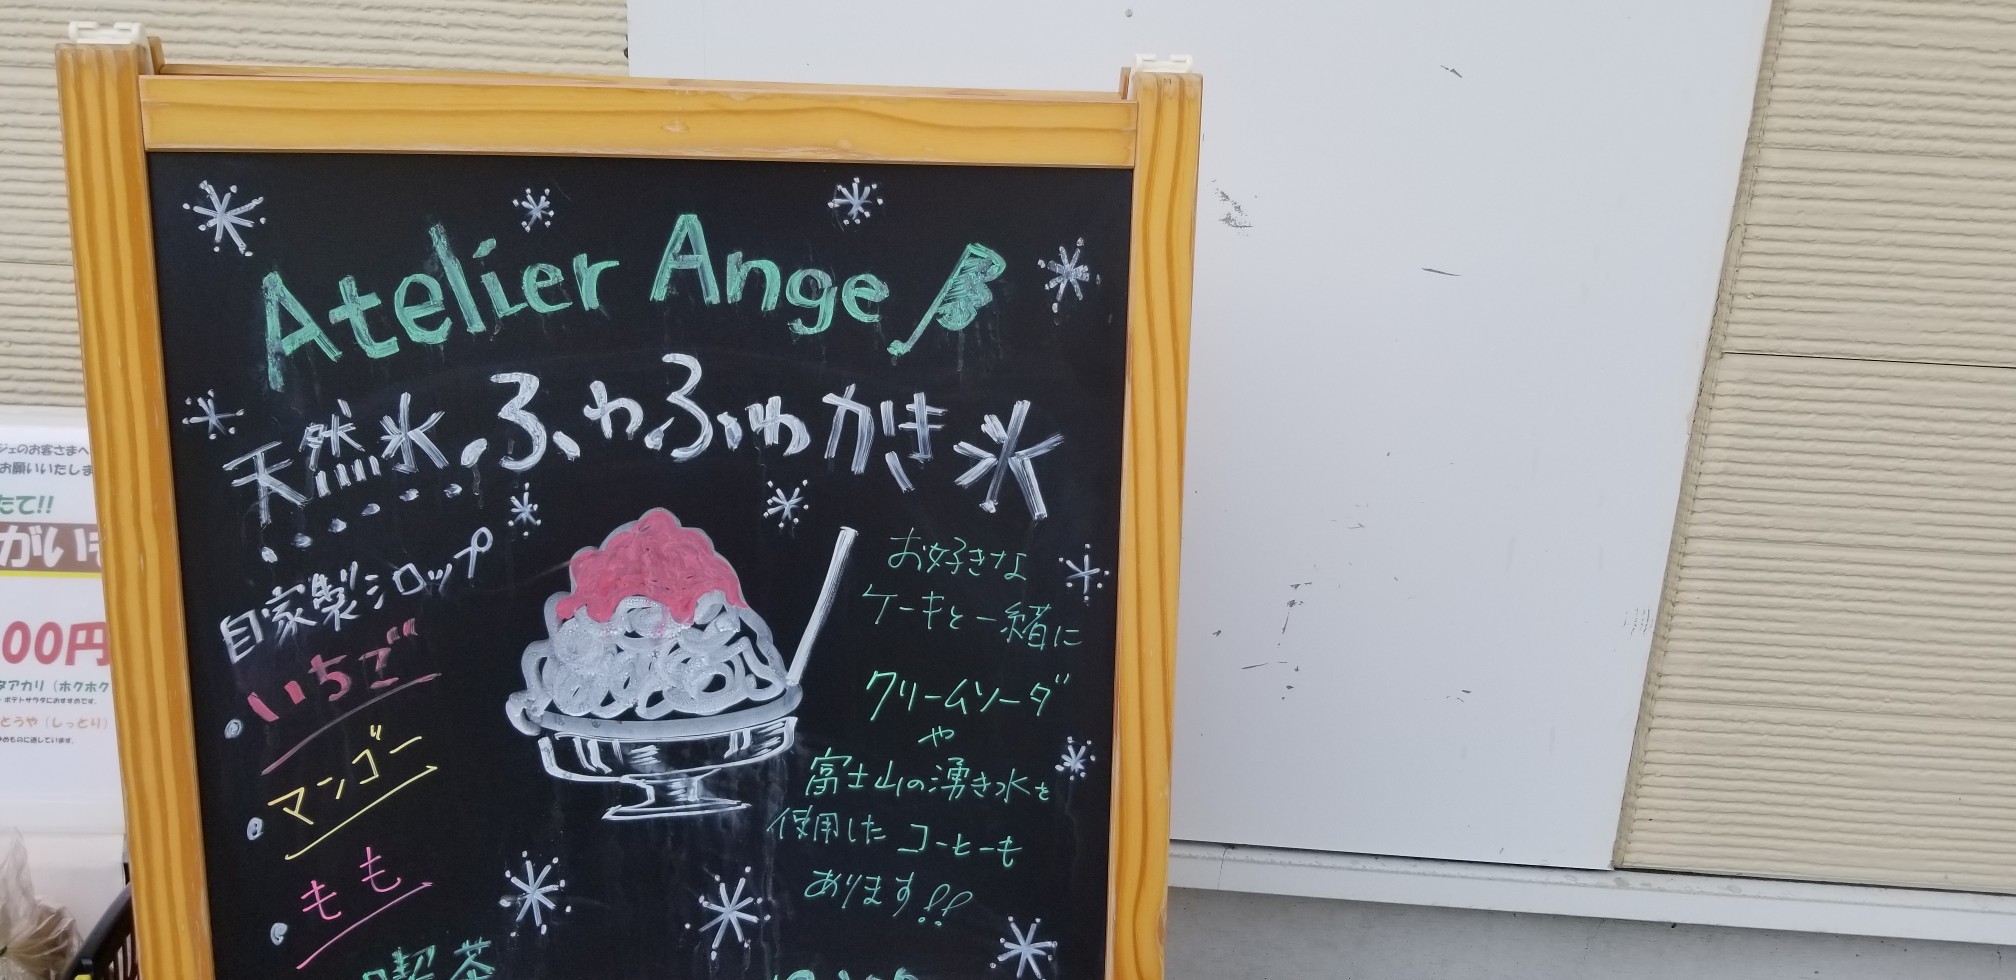 Atelier Ange
天然氷 ふわふわかき氷
自家製シロップ
いちご
マンゴー
もも
お好きな
ケーキと一緒に
クリームソーダ
や
富士山の湧き水を
使用した コーヒーも
あります!!
喫茶
ジェのお客さまへ
お願いいたしま
たて!!
がい
00円
タアカリ（ホクホク
・ポテトサラダにおすすめです.
とうや（しっとり）
めものに適しています.